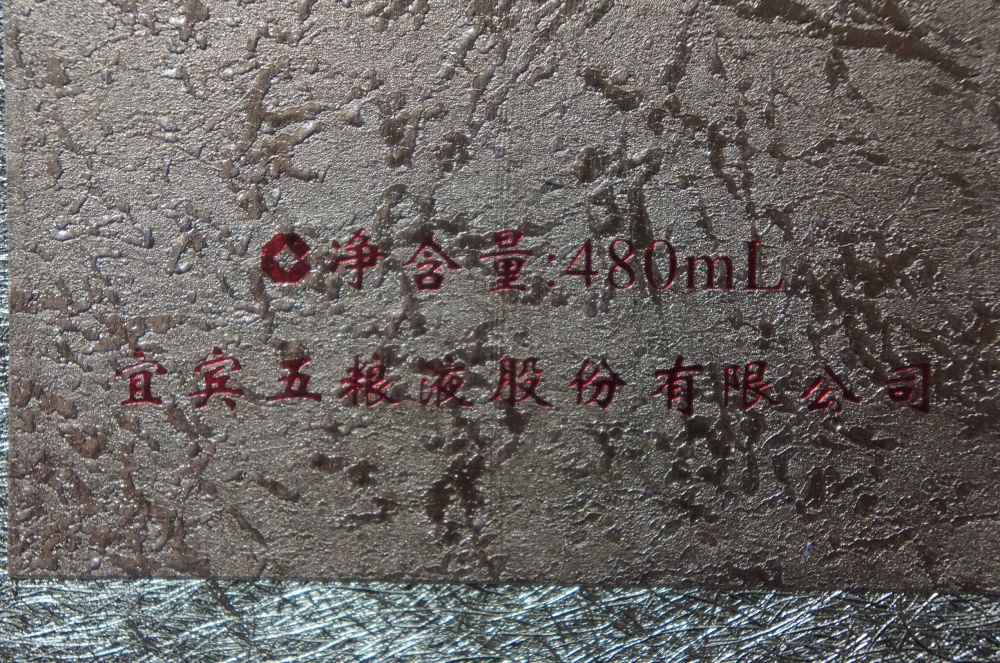 净含量:480mL
宜宾五粮液股份有限公司